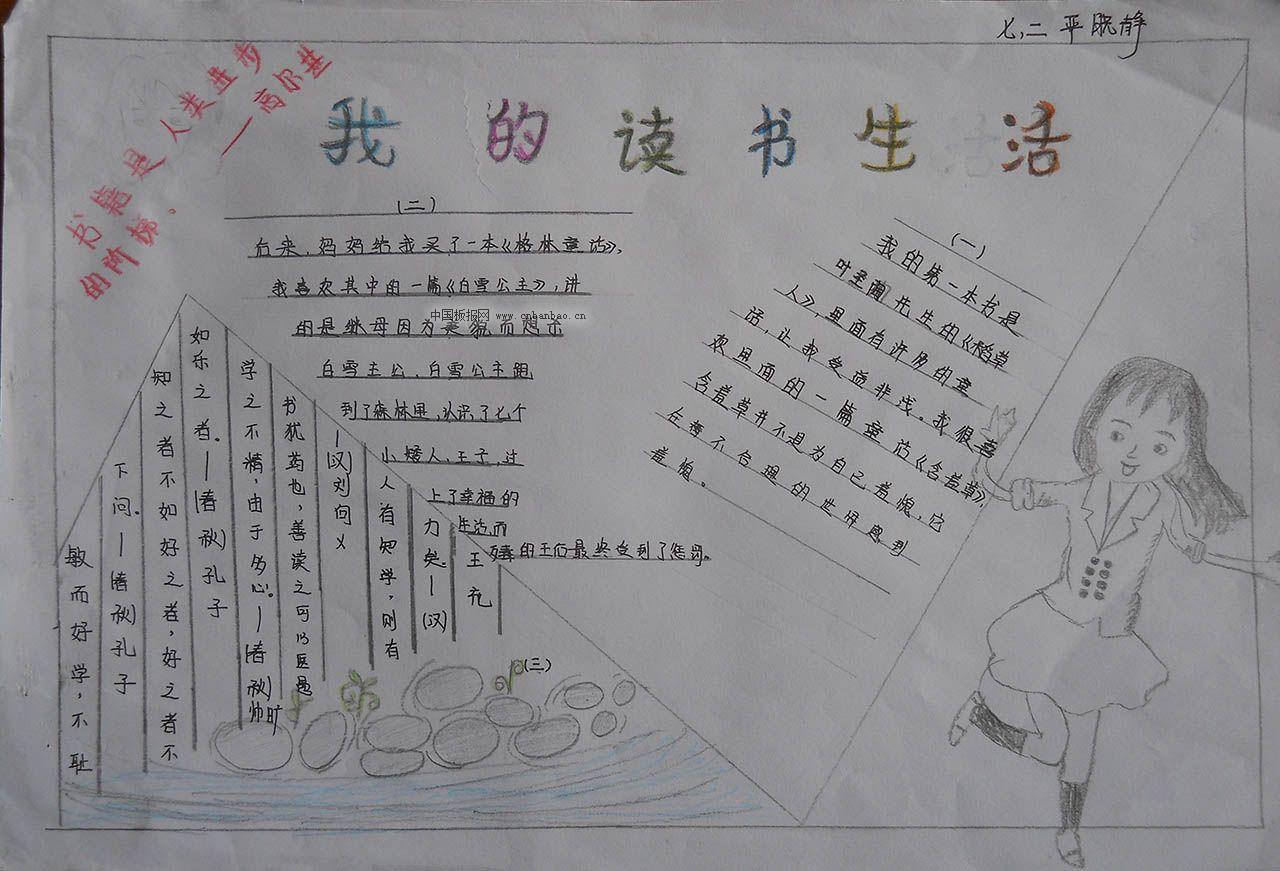 七,二 平晓静
书籍是人类进步
的阶梯。
——高尔基
我的读书生活
(一)
我的第一本书是
叶圣陶先生的《稻草
人》,里面有许多的童
话,让我受益非浅。我很喜
欢里面的一篇童话《含羞草》,
含羞草并不是为自己羞愧,它
在替不合理的世界感到
羞愧。
(二)
后来,妈妈给我买了一本《格林童话》,
我喜欢其中的一篇《白雪公主》,讲
的是继母因为美貌而想杀
白雪主公,白雪公主跑
到了森林里,认识了七个
小矮人,王子,过
上了幸福的
生活而
恶毒的王后最终受到了惩罚。
中国板报网 www.cnbanbao.cn
(三)
敏而好学,不耻
下问。—(春秋)孔子
知之者不如好之者,好之者不
如乐之者。—(春秋)孔子
学之不精,由于多心。—(春秋)师旷
书犹药也,善读之可以医愚
—(汉)刘向
人有知学,则有
力矣。—(汉)
王充